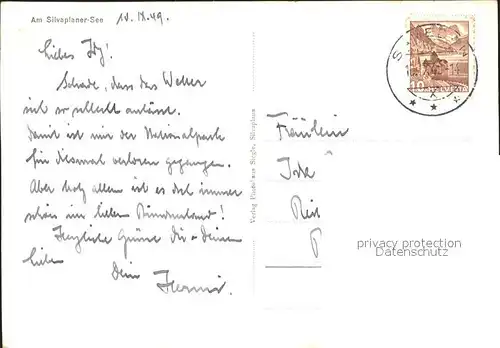 Am Silvaplaner-See
10. IX. 49.
Liebes Idy!
Schade, dass das Wetter
sich so schlecht anlässt.
Damit ist mir der Nationalpark
für diesmal verloren gegangen.
Aber trotz allem ist es doch immer
schön im lieben Bündnerland!
Herzliche Grüsse Dir & Deinen
lieben
Dein Hermi.
Fräulein
Ida
privacy protection
Datenschutz
10
HELVETIA